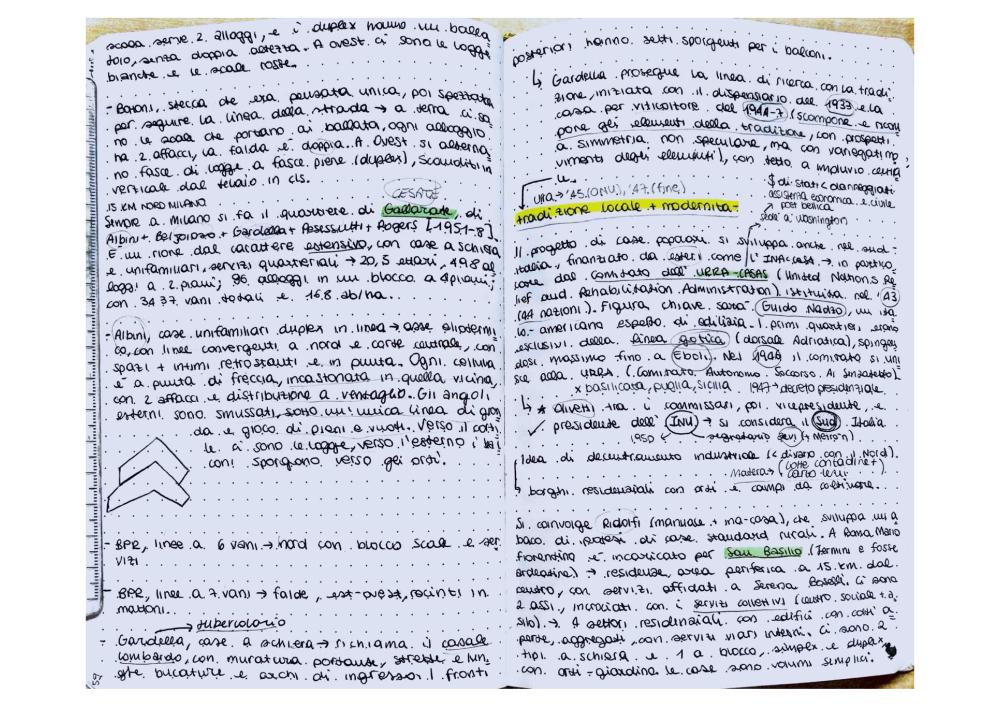 scala serve 2 alloggi, e i duplex hanno un balla
toio, senza doppia altezza. A ovest ci sono le logge
bianche e le scale rosse.
- Bottoni, stecca che era pensata unica, poi spezzata
per seguire la linea della strada → a terra ci so
no le scale che portano ai ballatoi, ogni alloggio
ha 2 affacci, la falda è doppia. A Ovest si alterna
no fasce di logge a fasce piene (duplex), scanditi in
verticale dal telaio in cls.
15 KM NORD MILANO
CESATE
Sempre a Milano si fa il quartiere di Gallarate, di
Albini + Belgiojoso + Gardella + Peressutti + Rogers [1951-8].
È un rione dal carattere estensivo, con case a schiera
e unifamiliari, servizi quartieriali → 20,5 ettari, 498 al
loggi a 2 piani; 96 alloggi in un blocco a 4 piani;
con 3437 vani totali e 168 ab/ha.
- Albini, case unifamiliari duplex in linea → asse eliotermi
co, con linee convergenti a nord e corte centrale, con
spazi + intimi retrostanti e in punta. Ogni cellula
è a punta di freccia, incastonata in quella vicina,
con 2 affacci e distribuzione a ventaglio. Gli angoli
esterni sono smussati, sotto un'unica linea di gron
da e gioco di pieni e vuoti. Verso il corti
le ci sono le logge, verso l'esterno i bal
coni sporgono verso gli orti.
- BPR, linee a 6 vani → nord con blocco scale e ser
vizi
- BPR, linee a 7 vani → falde, est-ovest, recinti in
mattoni.
→ tubercolario
- Gardella, case a schiera → richiama il casale
lombardo, con muratura portante, strette e lun
ghe bucature e archi di ingresso. I fronti
59
posteriori hanno setti sporgenti per i balconi.
↳ Gardella prosegue la linea di ricerca con la tradi
zione, iniziata con il dispensario del 1933 e la
casa per viticoltore del 1944-7 (scompone e ricom
pone gli elementi della tradizione, con prospetti
a simmetria non speculare, ma con variegati mo
vimenti degli elementi), con tetto a impluvio centra
le.
$ di stati < danneggiati
assistenza economica e civile
post bellica
sede a Washington
UNRRA → '45 (ONU), '47 (fine)
tradizione locale + modernità
Il progetto di case popolari si sviluppa anche nel sud
italia, finanziato da esteri come l'INA-casa → in partico
lare dal comitato dell'URRA-CASAS (United Nations Re
lief and Rehabilitation Administration), istituita nel '43
(44 nazioni). Figura chiave sarà Guido Nadzo, un ita
lo-americano esperto di edilizia. I primi quartieri erano
esclusivi della linea gotica (dorsale Adriatica), spingen
dosi massimo fino a Eboli. Nel 1946 il comitato si uni
sce alla (Comitato Autonomo Soccorso Ai Senzatetto).
x basilicata, puglia, sicilia 1947 → decreto presidenziale
↳ * Oliveti tra i commissari, poi vicepresidente, e
✓ presidente dell'INU → si considera il Sud Italia
1950 ← segretario Zevi (+ Meiron)
Idea di decentramento industriale (< divario con il Nord).
Matera → (corte contadine +)
borghi residenziali con orti e campi da coltivare.
Si coinvolge Ridolfi (manuale + ina-casa), che sviluppa un a
baco di ipotesi di case standard rurali. A Roma, Mario
Fiorentino è incaricato per San Basilio (Termini e fosse
ardeatine) → residenze, area periferica a 15 km dal
centro, con servizi affidati a Serena Boselli. Ci sono
2 assi, incrociati con i servizi collettivi (centro sociale + a
silo) → 4 settori residenziali con edifici con corti a
perte, aggregati, con servizi viari interni. Ci sono 2
tipi a schiera e 1 a blocco, simplex e duplex
con orti-giardino. le case sono volumi semplici.